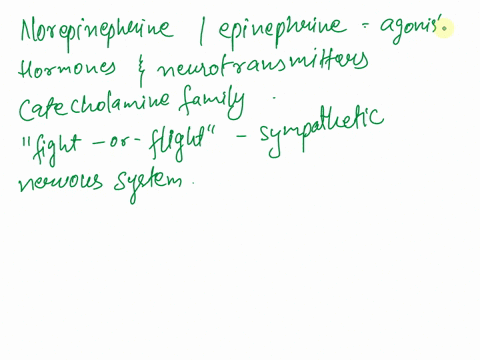 Norepinephrine / epinephrine = agonis
Hormones & neurotransmitters
Catecholamine family.
"fight-or-flight" - sympathetic
nervous system.